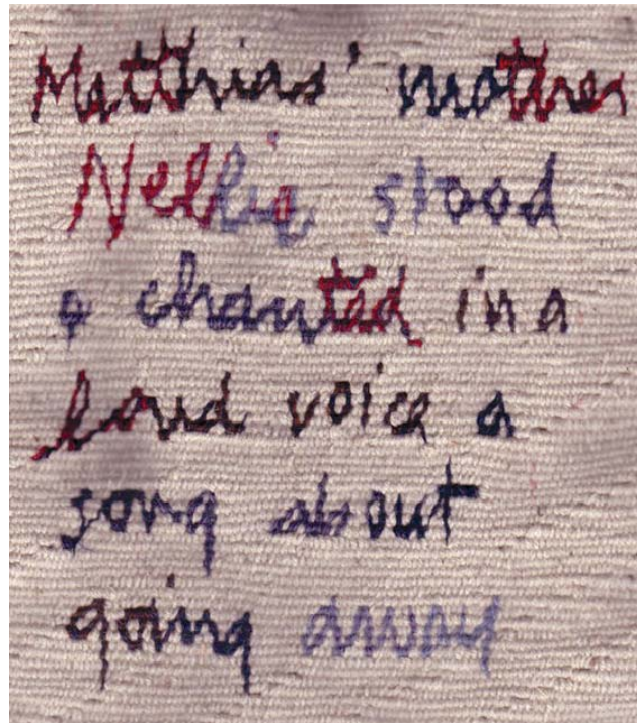 Matthias' mother
Nellie stood
& chanted in a
loud voice a
song about
going away